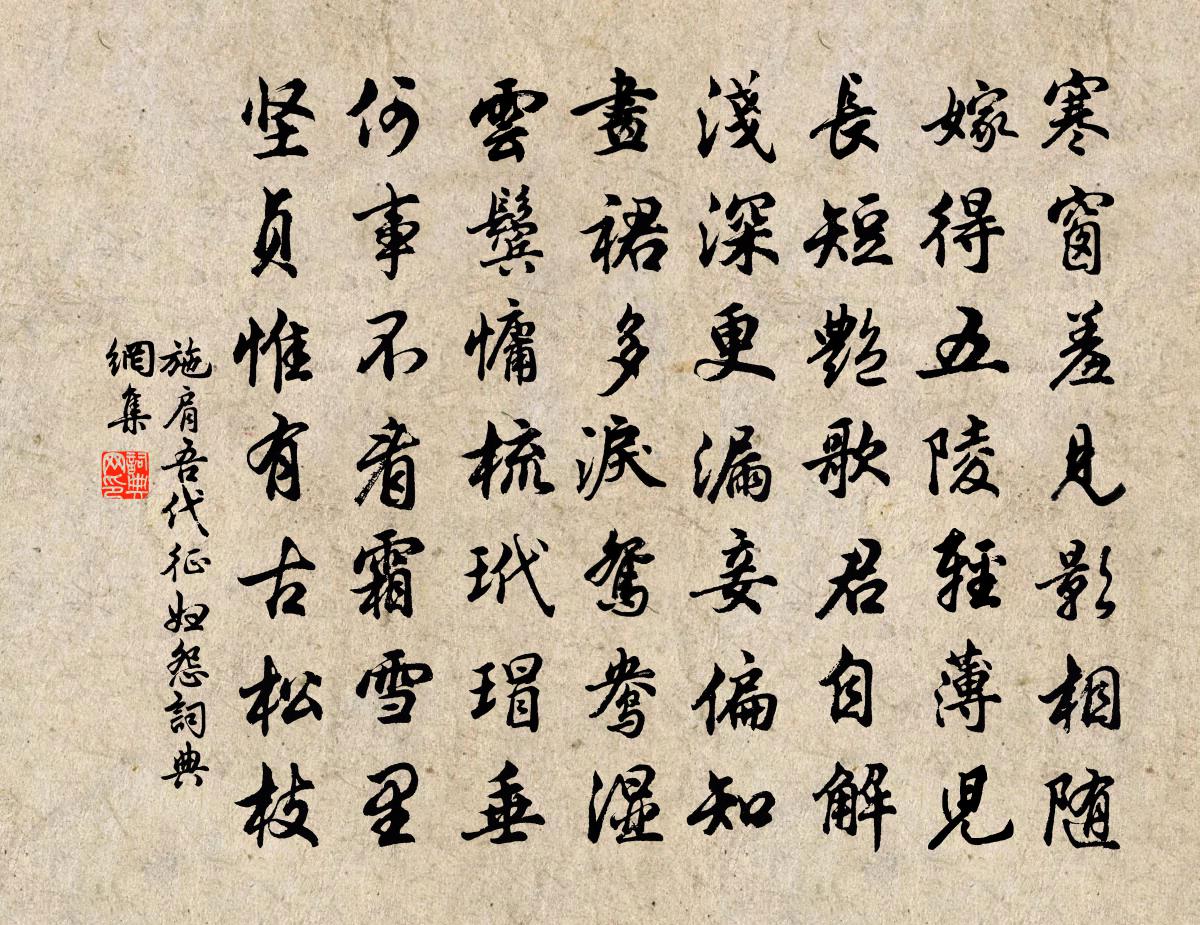 寒窗羞見影相随
嫁得五陵輕薄兒
長短艷歌君自解
淺深更漏妾偏知
畫裙多淚鴛鴦濕
雲鬢慵梳玳瑁垂
何事不看霜雪里
坚貞惟有古松枝
施肩吾代征婦怨詞典
網集
詞典
网印